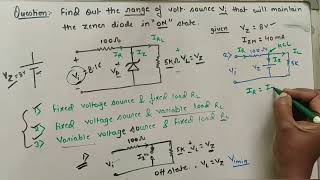 Question:- Find out the range of volt. source Vi that will maintain
the zener diode in "ON" state.
given Vz = 8V
IZM = 40mA
100Ω
IR
IL
Vi
Vz
5K
VL = Vz
VZ = 8V
a) IR 100Ω KCL
Vi
Vz
5K
IR = I
1) fixed voltage source & fixed load RL
2) fixed voltage source & variable load RL
3) Variable voltage source & fixed load RL
1)
100Ω
Vi
5K
VL = Vz
off state. VL = Vz
Vimin